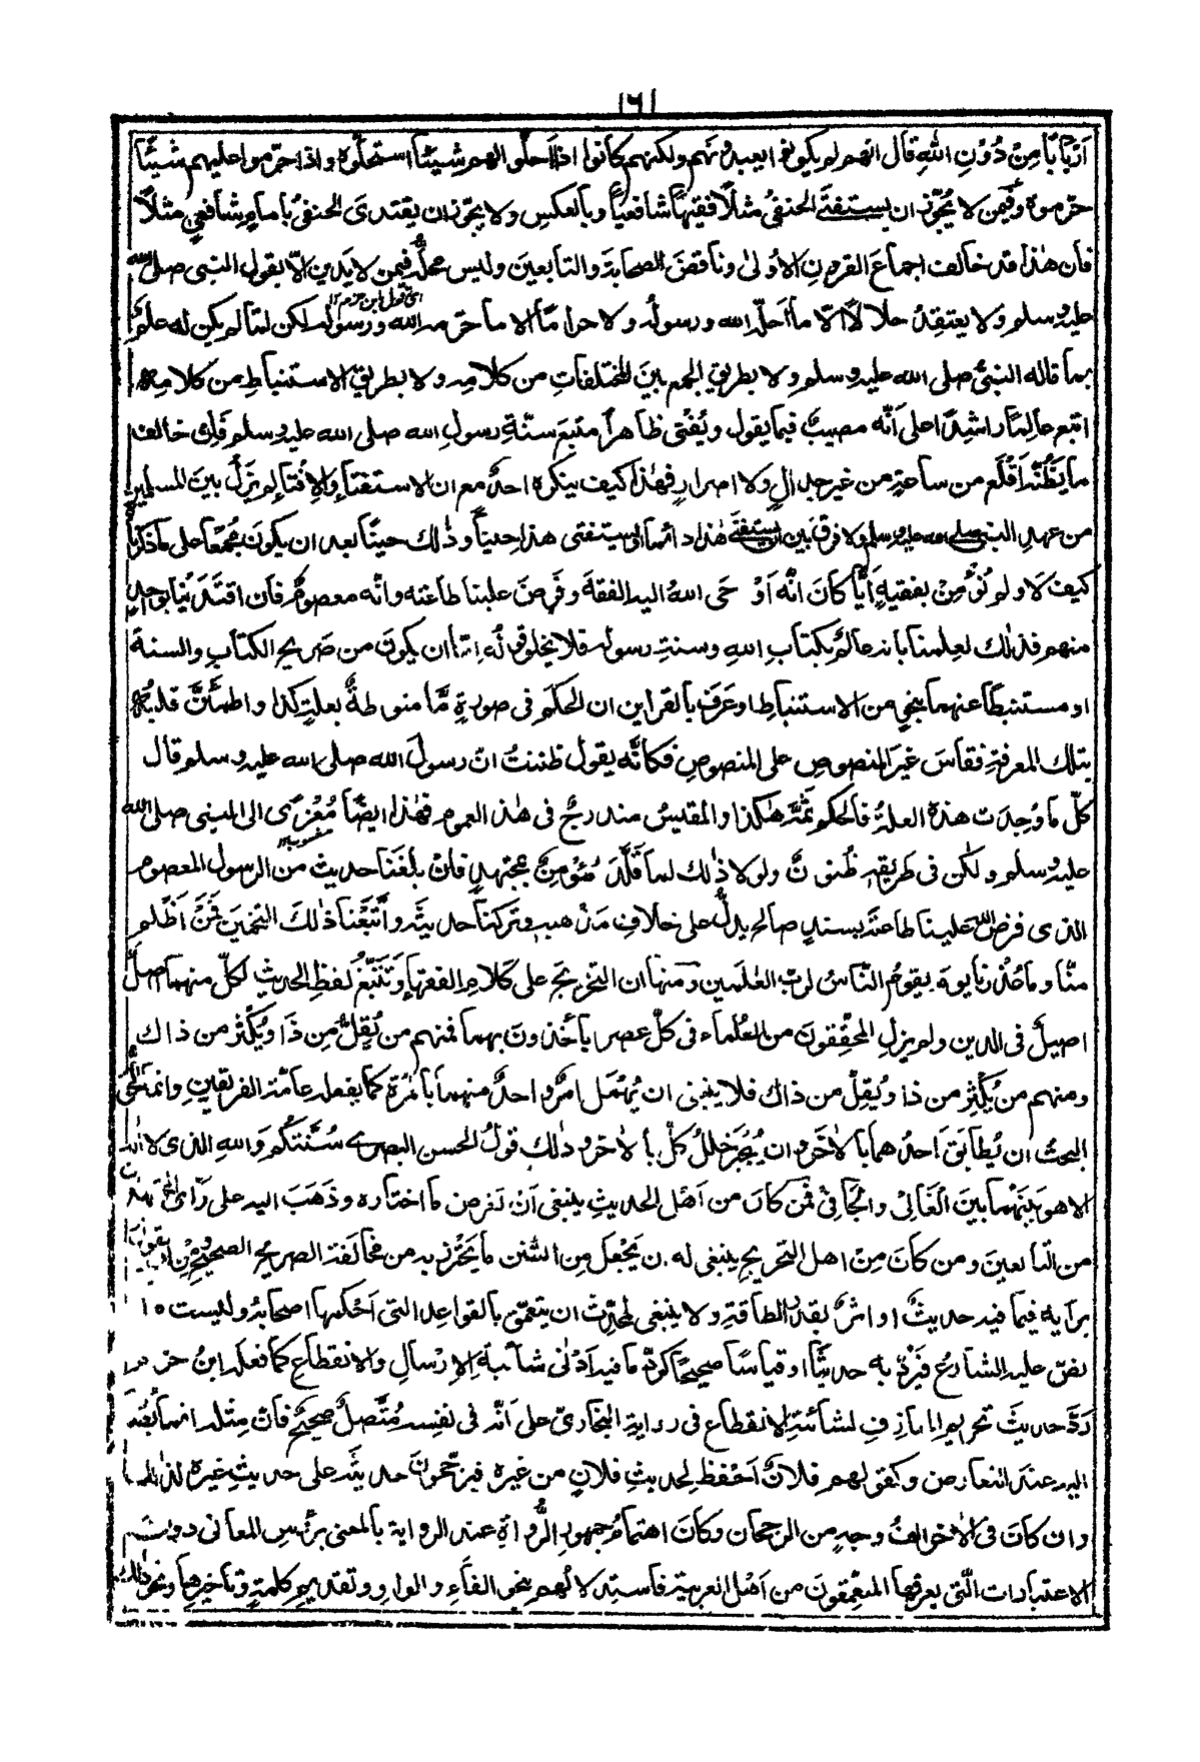 ١٦١
اَرْبَابًا مِنْ دُوْنِ اللهِ قال انهم لم يكونوا يعبدونهم ولكنهم كانوا اذا احلّوا لهم شيئًا استحلّوه واذا حرّموا عليهم شيئًا
حرّموه وفيمن لا يُجوّز ان يستفتى الحنفىُ مثلًا فقيهًا شافعيًا وبالعكس ولا يجوّز ان يقتدى الحنفىُ بامامٍ شافعى مثلًا
فان هذا قد خالف اجماعَ القرونِ الاُولىٰ وناقض الصحابةَ والتابعينَ وليس محلّه فيمن لا يَدين الّا بقول النبى صلى الله
عليه وسلم ولا يعتقدُ حلالًا الّا ما احلّ الله ورسولُه ولا حرامًا الا ما حرّمه الله ورسوله لكن لمّا لم يكن له علمٌ
اى قول ابن حزم ١٢
بما قاله النبىُ صلى الله عليه وسلم ولا بطريق الجمع بينَ المختلفاتِ من كلامِه ولا بطريق الاستنباطِ من كلامِه
اتبع عالِمًا راشدًا على اَنّه مصيبٌ فيما يقول ويُفتى ظاهرًا متبع سنّةِ رسولِ الله صلى الله عليه وسلم فان خالف
ما يَظُنُّه اَقْلَعَ من ساعتهٖ من غير جدالٍ ولا اصرارٍ فهٰذا كيف ينكره احدٌ مع ان الاستفتاءَ والاِفتاءَ لم يَزَلْ بينَ المسلمين
من عهدِ النبى صلى الله عليه وسلم ولا فرق بين ان يستفتى هٰذا دائما او يستفتى هذا حينًا وذٰلك حينًا بعد ان يكونَ مُجمِعًا على ما ذكرناه
كيفَ لَا ولم نُؤمِنْ بفقيهٍ اَيًّا كَانَ انّه اَوْحَى اللهُ اليه الفقهَ وفَرضَ علينا طاعته وانّه معصومٌ فان اقتَدَيْنا بواحدٍ
منهم فذٰلك لعِلمنا بانه عالمٌ بكتابِ اللهِ وسنةِ رسولهٖ فلا يخلو قولُهٗ اِمّا ان يكونَ من صَريح الكتابِ والسنة
او مستنبطًا عنهما بنحوٍ من الاستنباطِ او عرَفَ بالقراين ان الحكمَ فى صورةٍ مَّا منوطةٌ بعلتِ كذا واطمأنَّ قلبُهٗ
بتلك المعرفةِ فقاسَ غيرَ المنصوصِ على المنصوصِ فكانّه يقول ظننتُ انّ رسولَ الله صلى الله عليه وسلم قال
كلّ ما وُجِدَت هذه العلةُ فالحكم ثَمّه هٰكذا والمقيسُ مندرجٌ فى هٰذا العمومِ فهٰذا ايضًا مَعْزُىّ الى النبى صلى الله
منسوب ١٢
عليه وسلم ولكن فى طريقهٖ ظُنونٌ ولولا ذٰلك لما قَلَّدَ مُؤمِنٌ مجتهدٍ فاِنْ بلغَنا حديثٌ من الرسول المعصوم
الذى فرض الله علينا طاعتَهٗ بسندٍ صالحٍ يدلُّ على خلافِ مَذهبهٖ وتركنا حديثَه واتّبَعْنا ذٰلكَ التخمينَ فمَنْ اَظلم
منّا وما عُذرُنا يومَ يقومُ النّاسُ لربِّ العٰلَمين ومنها ان التخريجَ على كلامِ الفقهاءِ وَتَتَبّعَ لفظِ الحديثِ لكلٍّ منهما اصلٌ
اصيلٌ فى الدين ولم يزلِ المحقّقونَ من العُلماء فى كلّ عصرٍ ياخذون بهما فمنهم من يُقِلُّ مِن ذَا ويُكْثِر من ذاك
ومنهم من يُكْثِرُ من ذا ويُقِلّ من ذاك فلا ينبغى ان يُهْمَل امرُ واحدٍ منهما بالمَرّة كما يفعله عامّة الفريقينِ وانما الحقّ
البحتُ ان يُطابَقَ اَحدُهما بالاٰخَرِ وان يُجْبَرَ خَلَلُ كلٍّ بالاٰخر وذٰلك قولُ الحسن البصرى سُنّتُكُم وَاللهِ الذى لا الٰه
الا هو بَيْنَهما بينَ الغَالىْ والجَافىْ فمن كانَ من اَهْلِ الحديثِ ينبغى اَنْ يَعْرِضَ ما اختاره وذَهَبَ اليه على رَأى المجتهدين
من التابعينَ ومن كانَ مِنْ اهل التخريجِ ينبغى له ان يَجْعَلَ مِن السُّنن ما يَحْترزُ به من مخالفة الصريحِ الصحيحِ ومن ان يقول
برأيه فيما فيه حديثٌ او اثرٌ بقدرِ الطاقةِ ولا ينبغى لمحدّثٍ ان يتعمّق بالقواعد التى اَحْكمها اصحابُهٗ وليست ممّا
نصّ عليه الشارعُ فيَرُدّ به حديثًا او قياسًا صحيحًا كردّ ما فيه اَدْنٰى شائبة الاِرْسال والانقطاع كما فعله ابنُ حزم
رَدّ حديثَ تحريمِ المعازفِ لشائبةِ الانقطاعِ فى رواية البخارىّ على اَنّه فى نفسه مُتّصلٌ صحيحٌ فانّ مِثلَه انما يُصَار
اليه عندَ التعارض وكقولهم فلانٌ اَحفظُ لحديثِ فلانٍ من غيره فيرجّحونَ حديثَه على حديثِ غيره لذٰلك
وان كانَ فى الاٰخرِ الفُ وجهٍ من الرجحان وكانَ اهتمامُ جمهورِ الرُّواةِ عند الروايةِ بالمعنى برؤسِ المعانى دونَ
الاعتبارات التى يعرفها المتعمّقونَ من اَهْلِ العربيةِ فاستدلالُهم بنحو الفَاءِ والواوِ وتقديمِ كلمةٍ وتاخيرها ونحو ذٰلك